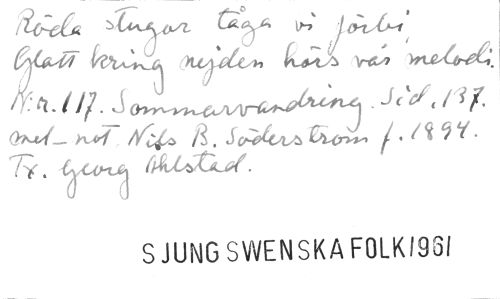 Röda stugor tåga vi förbi,
Glatt kring nejden hörs vår melodi.
N:r. 117. Sommarvandring. Sid. 137.
mel_not. Nils B. Söderstrom f. 1894.
Tx. Georg Ahlstad.
SJUNG SWENSKA FOLK 1961